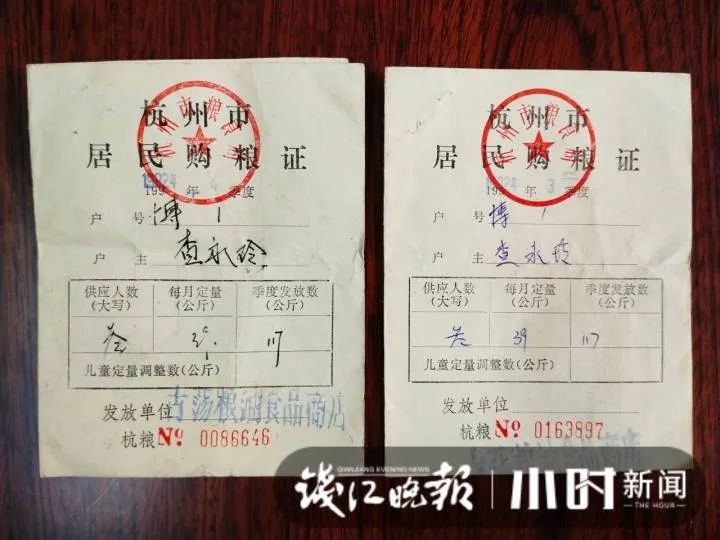 杭州市
居民购粮证
1992年 4 季度
户 号 博 1
户 主 查永玲
供应人数(大写) 每月定量(公斤) 季度发放数(公斤)
叁 39 117
儿童定量调整数(公斤)
发放单位 古荡粮油食品商店
杭粮 No 0086646
杭州市
居民购粮证
1992年 3 季度
户 号 博 1
户 主 查永玲
供应人数(大写) 每月定量(公斤) 季度发放数(公斤)
叁 39 117
儿童定量调整数(公斤)
发放单位
杭粮 No 0163897
QIANJIANG EVENING NEWS
钱江晚报 小时新闻
THE HOUR